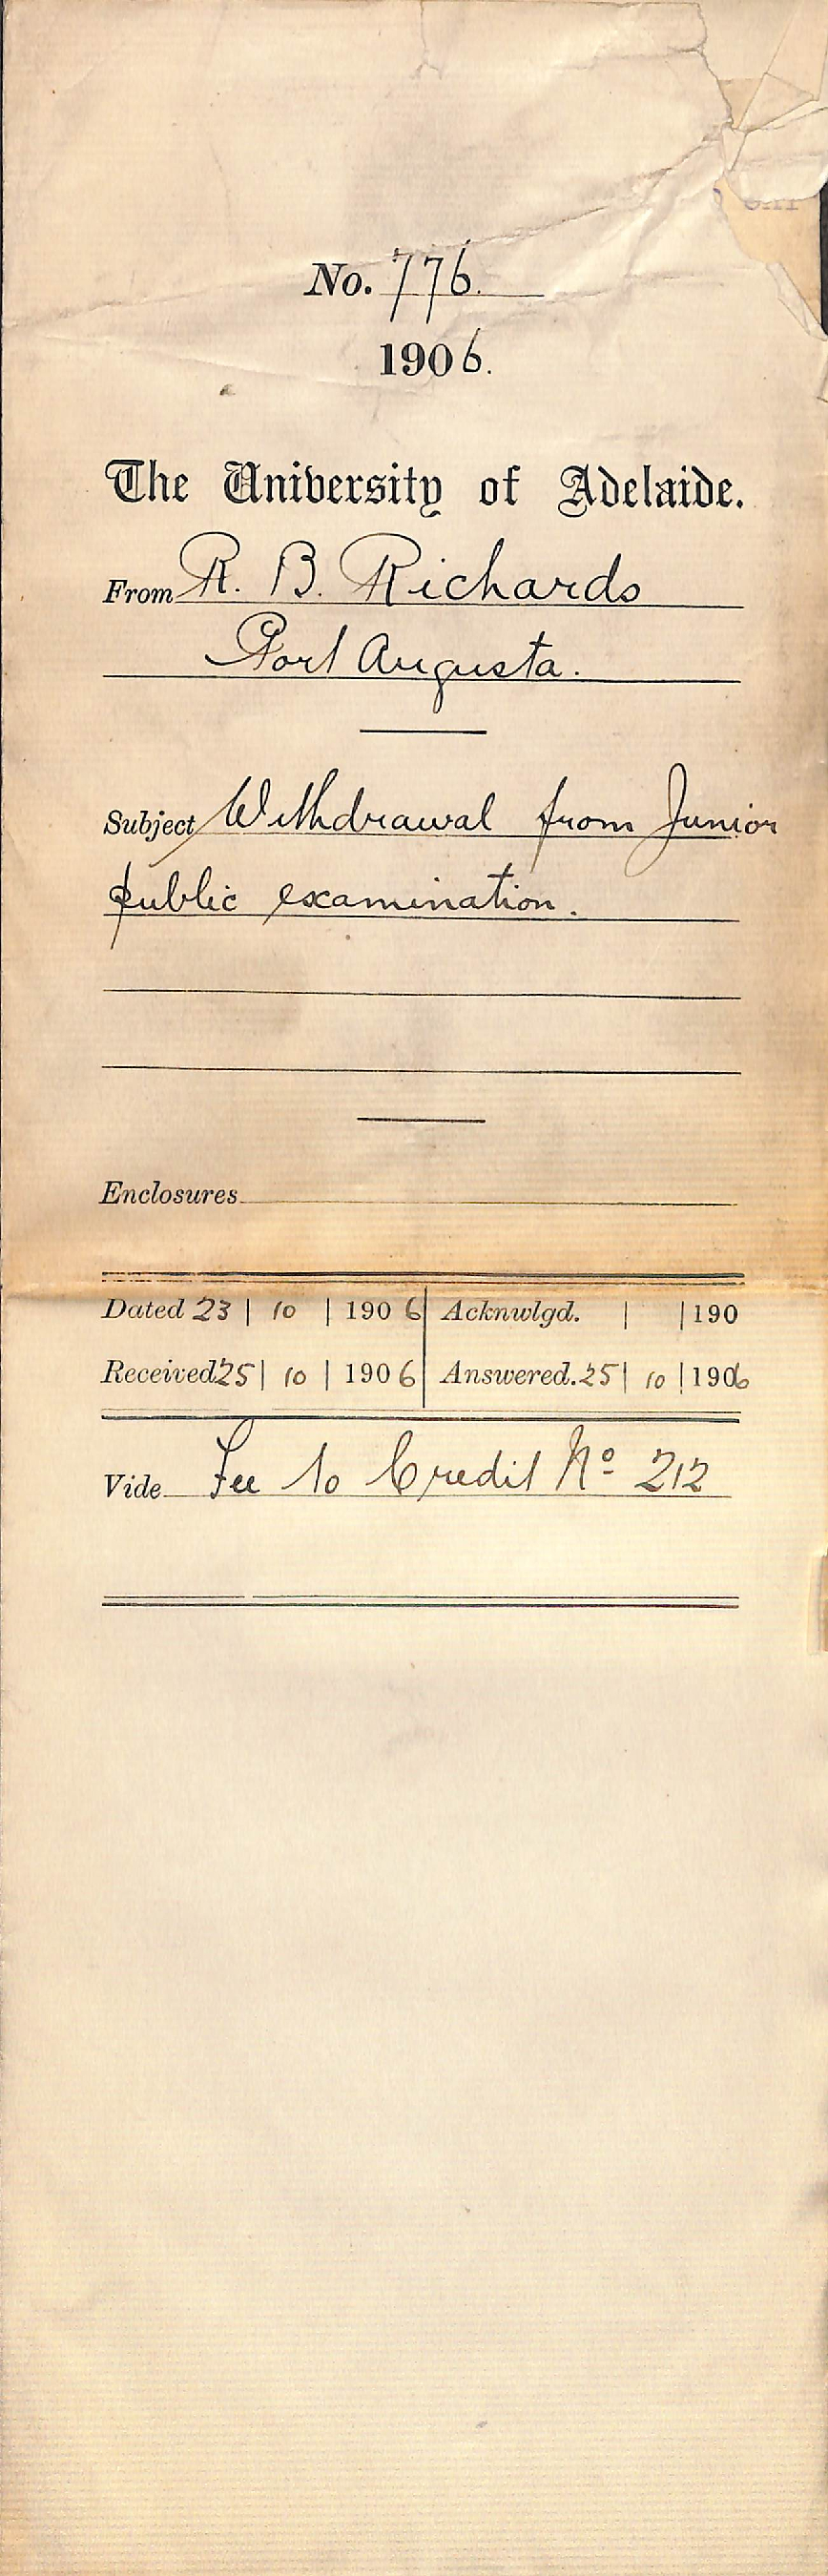 No. 776.
1906.
The University of Adelaide.
From R. B. Richards
Port Augusta.
Subject Withdrawal from Junior
public examination.
Enclosures
Dated 23 | 10 | 1906 Acknwlgd. | | 190
Received 25 | 10 | 1906 Answered. 25 | 10 | 1906
Vide Fee to Credit Nº 212